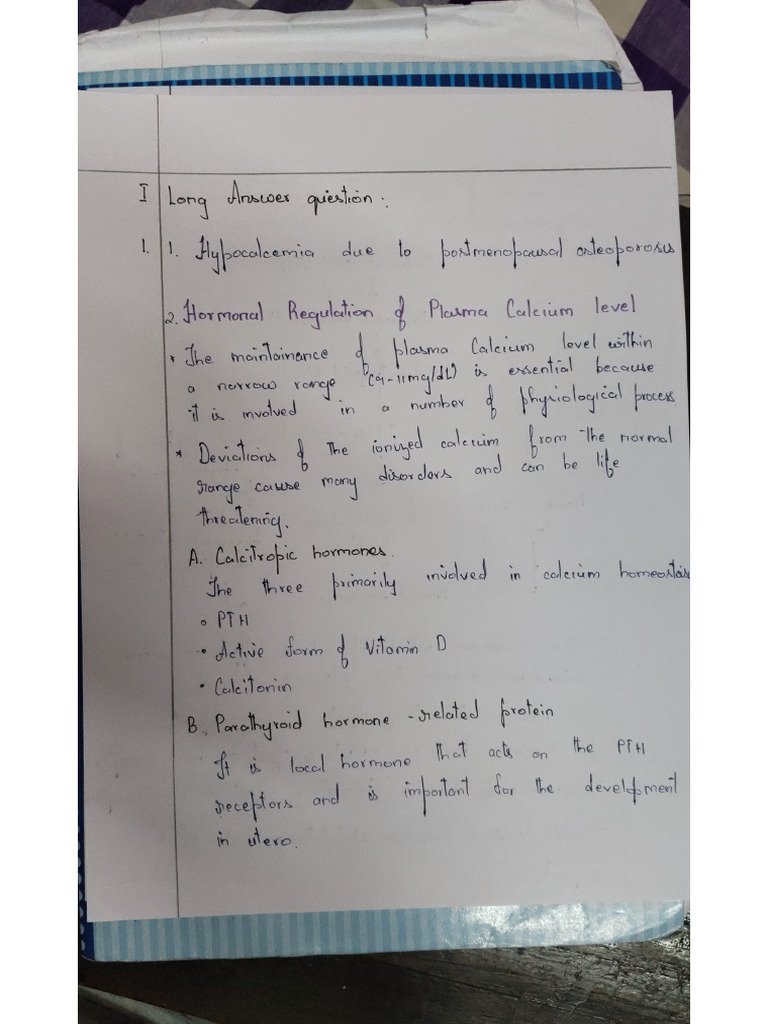 I Long Answer question :
1. 1. Hypocalcemia due to postmenopausal osteoporosis
2. Hormonal Regulation of Plasma Calcium level
* The maintainance of plasma Calcium level within
a narrow range (9-11mg/dL) is essential because
it is involved in a number of physiological process
* Deviations of the ionized calcium from the normal
range cause many disorders and can be life
threatening.
A. Calcitropic hormones.
The three primarily involved in calcium homeostasis
• PTH
• Active form of Vitamin D
• Calcitonin
B. Parathyroid hormone - related protein
It is local hormone that acts on the PTH
receptors and is important for the development
in utero.